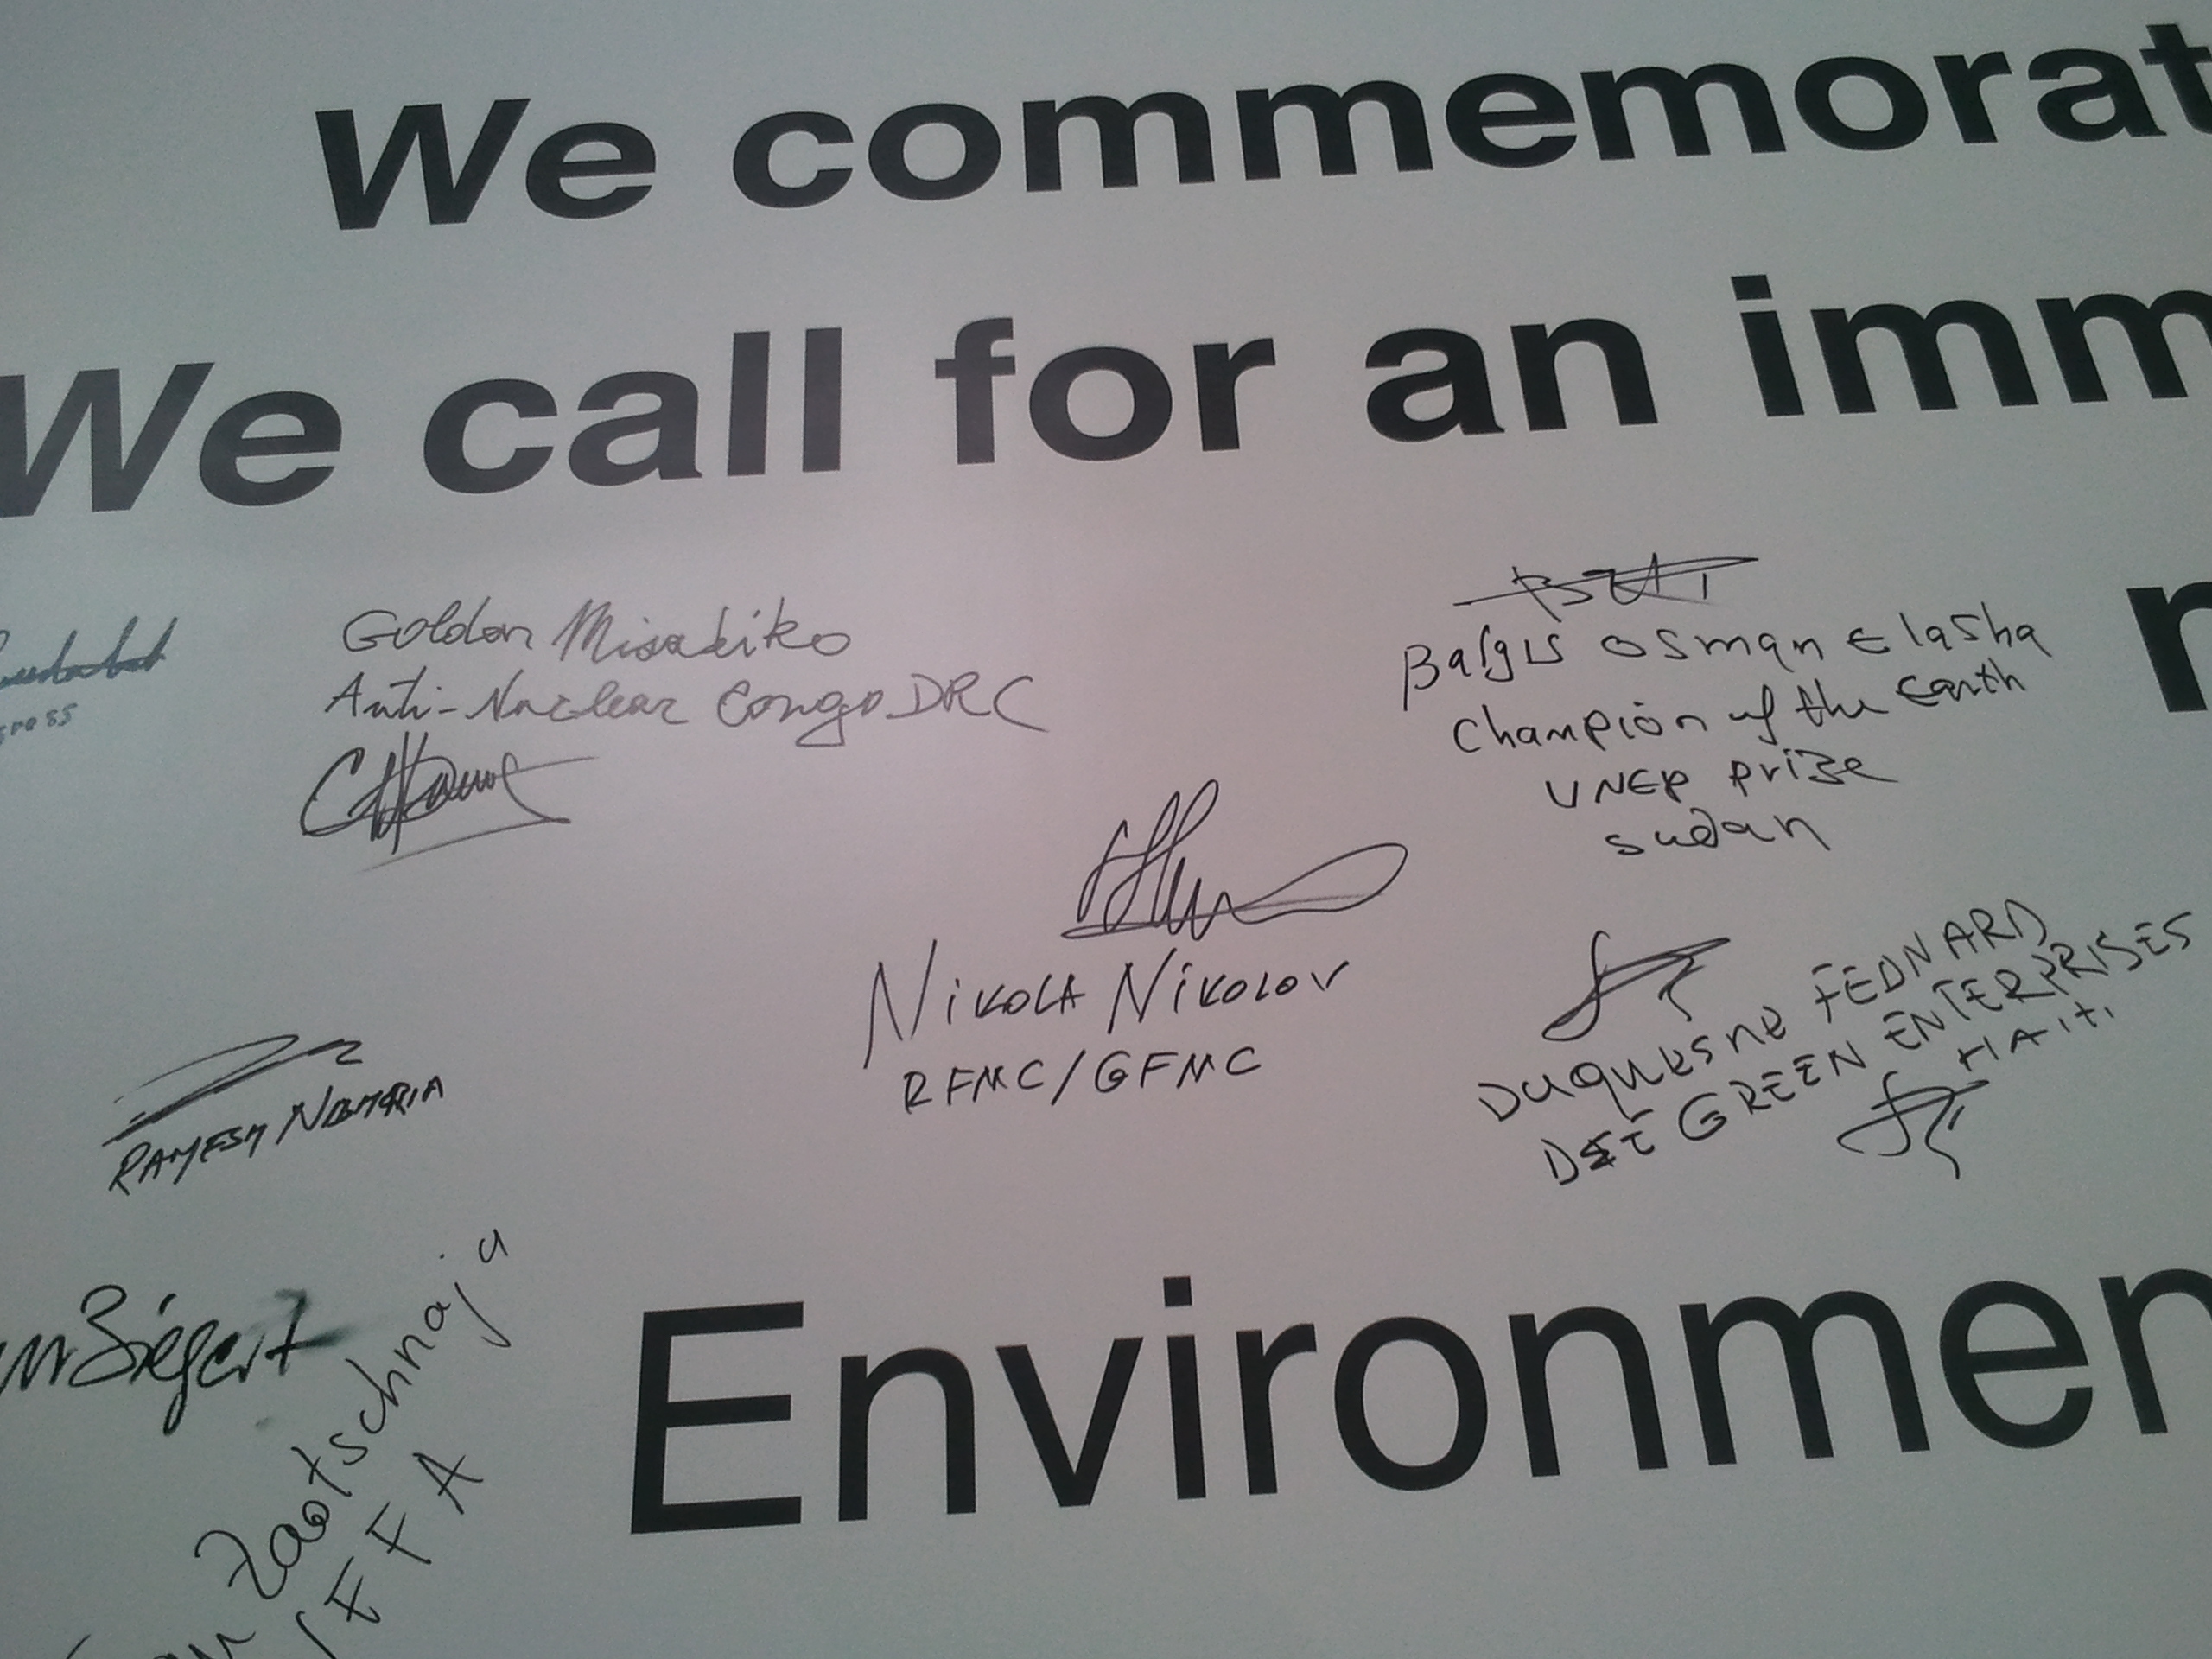 We commemorat
We call for an imm
Golden Misabiko
Anti-Nuclear Congo DRC
Balgis Osman Elasha
Champion of the Earth
UNEP prize
Sudan
Nikola Nikolov
RFMC/GFMC
Duquesne FEDNARD
D&E GREEN ENTERPRISES
HAITI
RAMESH
Siegert
Zaotschnaja
IFFA
Environmen